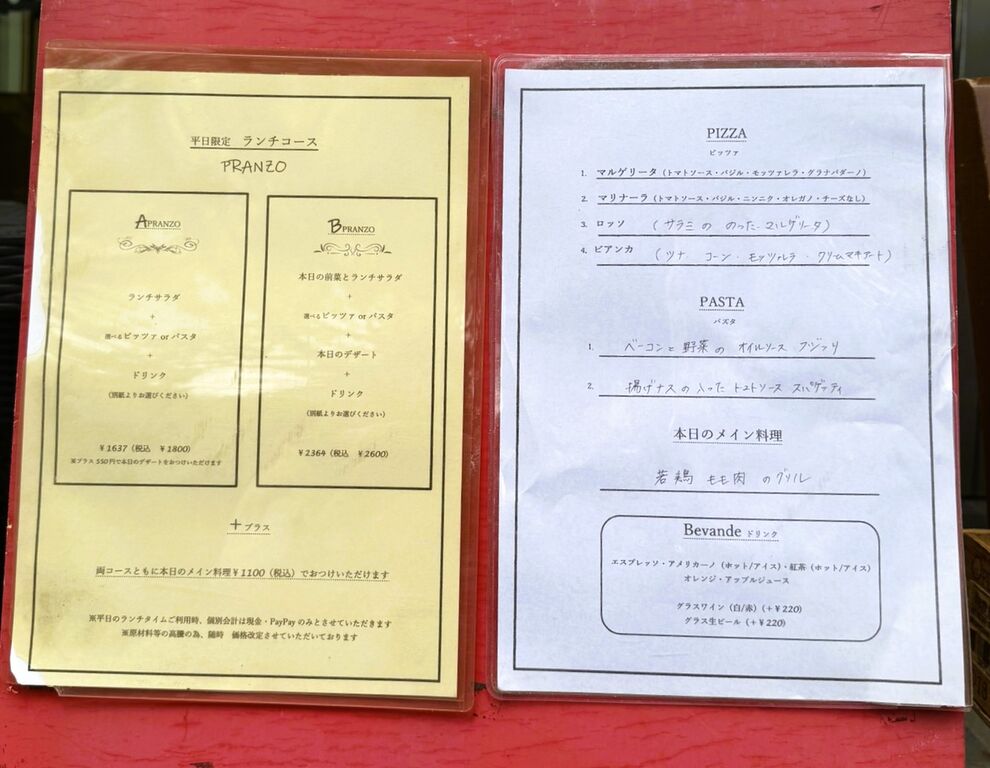 平日限定 ランチコース
PRANZO
A PRANZO
ランチサラダ
+
選べるピッツァ or パスタ
+
ドリンク
(別紙よりお選びください)
¥1637(税込 ¥1800)
※プラス550円で本日のデザートをおつけいただけます
B PRANZO
本日の前菜とランチサラダ
+
選べるピッツァ or パスタ
+
本日のデザート
+
ドリンク
(別紙よりお選びください)
¥2364(税込 ¥2600)
+プラス
両コースともに本日のメイン料理¥1100(税込)でおつけいただけます
※平日のランチタイムご利用時、個別会計は現金・PayPayのみとさせていただきます
※原材料等の高騰の為、随時 価格改定させていただいております
PIZZA
ピッツァ
1. マルゲリータ(トマトソース・バジル・モッツァレラ・グラナパダーノ)
2. マリナーラ(トマトソース・バジル・ニンニク・オレガノ・チーズなし)
3. ロッソ (サラミの のった マルゲリータ)
4. ビアンカ (ツナ コーン・モッツァレラ・クリームマキアート)
PASTA
パスタ
1. ベーコンと野菜の オイルソース フジッリ
2. 揚げナスの入った トマトソース スパゲッティ
本日のメイン料理
若鶏 モモ肉 のグリル
Bevande ドリンク
エスプレッソ・アメリカーノ(ホット/アイス)・紅茶(ホット/アイス)
オレンジ・アップルジュース
グラスワイン(白/赤)(+¥220)
グラス生ビール(+¥220)